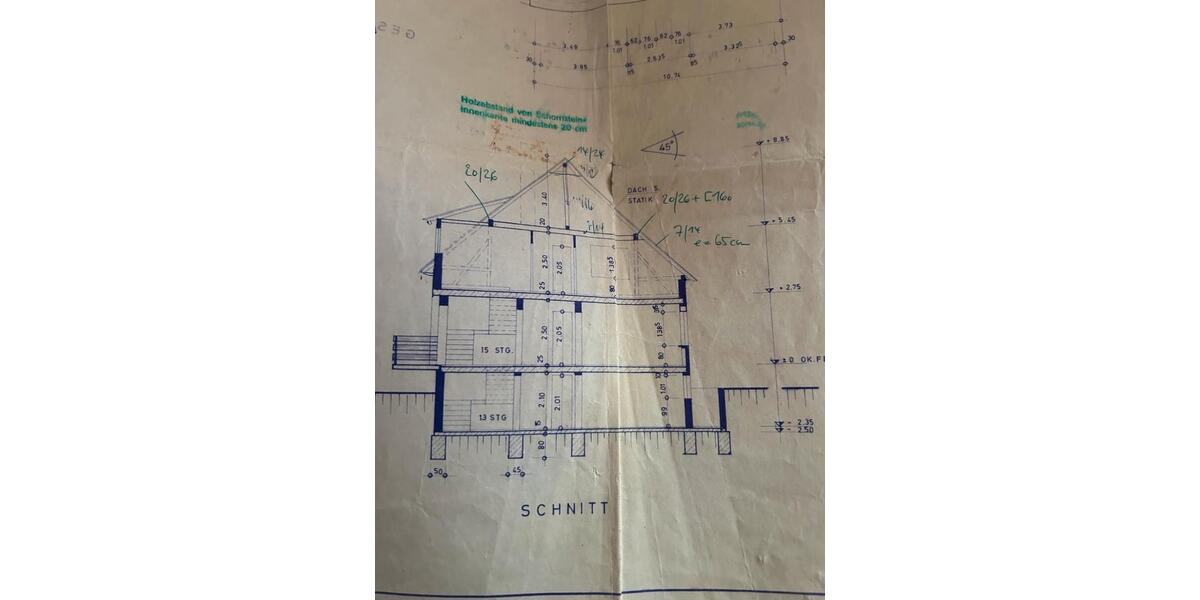 3.49 76 62 76 62 76 3.73
1.01 1.01 1.01
30 3.85 85 2.535 85 3.325 30
10.74
Holzabstand von Schornstein-
Innenkante mindestens 20 cm
45°
+ 8.85
14/24
20/26
DACH S.
STATIK
20/26 + [160
3.40
20
+ 5.45
7/14
e = 65 cm
2.50
2.05
1.385
25
80
+ 2.75
2.50
2.05
1.385
15 STG.
25
80
± 0 OK.F
2.10
2.01
1.01
99
13 STG
15
- 2.35
- 2.50
80
50
45
SCHNITT